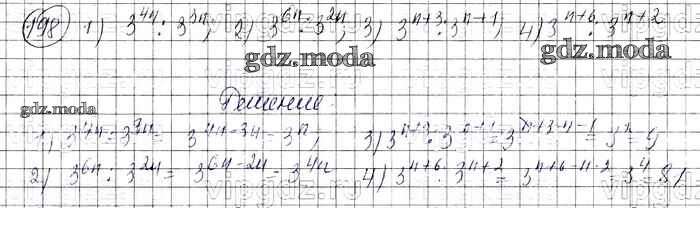 198 1) 3⁴ⁿ : 3³ⁿ; 2) 3⁶ⁿ : 3²ⁿ; 3) 3ⁿ⁺³ : 3ⁿ⁺¹; 4) 3ⁿ⁺⁶ : 3ⁿ⁺²
gdz.moda gdz.moda
gdz.moda Решение
1) 3⁴ⁿ : 3³ⁿ = 3⁴ⁿ⁻³ⁿ = 3ⁿ; 3) 3ⁿ⁺³ : 3ⁿ⁺¹ = 3ⁿ⁺³⁻ⁿ⁻¹ = 3² = 9
2) 3⁶ⁿ : 3²ⁿ = 3⁶ⁿ⁻²ⁿ = 3⁴ⁿ 4) 3ⁿ⁺⁶ : 3ⁿ⁺² = 3ⁿ⁺⁶⁻ⁿ⁻² = 3⁴ = 81
vipgdz.ru